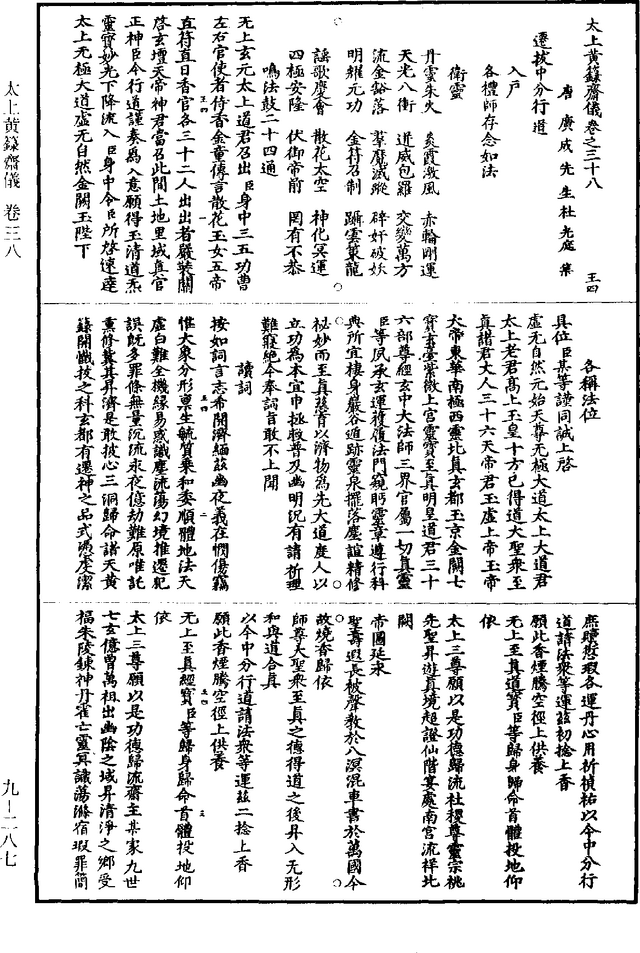 太上黄籙齋儀卷之三十八
唐廣成先生杜光庭集
王四
遷拔中分行道
入戶
各禮師存念如法
衛靈
丹靈朱火 炎霞激風 赤輪剛運
天光八衝 迸威包羅 交變萬方
流金豁落 羣魔滅蹤 辟奸破妖
明耀元功 金符召制 躡雲策龍
謡歌慶會 散花太空 神化冥運
四極安隆 伏御帝前 罔有不恭
鳴法鼓二十四通
无上玄元太上道君召出臣身中三五功曹
左右官使者侍香金童傳言散花玉女五帝
直符直日香官各三十二人出出者嚴裝關
啓玄壇天帝神君當召此間土地里域真官
正神臣今行道謹奏爲入意願得玉清道炁
靈寶妙光下降流入臣身中令臣所啓速達
太上无極大道虛无自然金闕玉陛下
各稱法位
具位臣某等謹同誠上啓
虛无自然元始天尊无極大道太上大道君
太上老君高上玉皇十方已得道大聖衆至
真諸君丈人三十六天帝君玉虛上帝玉帝
大帝東華南極西靈北真玄都玉京金闕七
寶玄臺紫微上宮靈寶至真明皇道君三十
六部尊經玄中大法師三界官屬一切真靈
臣等夙承玄運獲履法門窺眄靈章遵行科
典所宜棲身巖谷遁跡靈泉擺落塵諠精修
祕妙而至真慈育以濟物爲先大道度人以
立功爲本宜申拯救普及幽明況有請祈理
難寢絶今奉詞旨敢不上聞
讀詞
按如詞言志希開濟緬兹幽夜義在憫傷竊
惟大衆分形稟生毓質乘和委順體地法天
虛白難全機緣易惑識塵流蕩幻境推遷犯
誤既多罪條無量沉流永夜億劫難原唯託
熏修冀其昇濟是敢披心三洞歸命諸天黄
籙開懺拔之科玄都有還神之品式憑虔潔
庶贖愆瑕各運丹心用祈禎祐以今中分行
道請法衆等運兹初捻上香
願此香煙騰空徑上供養
无上至真道寶臣等歸身歸命首體投地仰
依
太上三尊願以是功德歸流社稷尊靈宗祧
先聖昇遊真境超證仙階宴處南宮流祥北
闕
帝國延永
聖壽遐長被聲教於八溟混車書於萬國今
故燒香歸依
師尊大聖衆至真之德得道之後昇入无形
和與道合真
以今中分行道請法衆等運兹二捻上香
願此香煙騰空徑上供養
无上至真經寶臣等歸身歸命首體投地仰
依
太上三尊願以是功德歸流齋主某家九世
七玄億曾萬祖出幽陰之城昇清淨之鄉受
福朱陵鍊神丹雀亡靈冥識蕩滌宿瑕罪簡
太上黄籙齋儀 卷三八
九-二八七